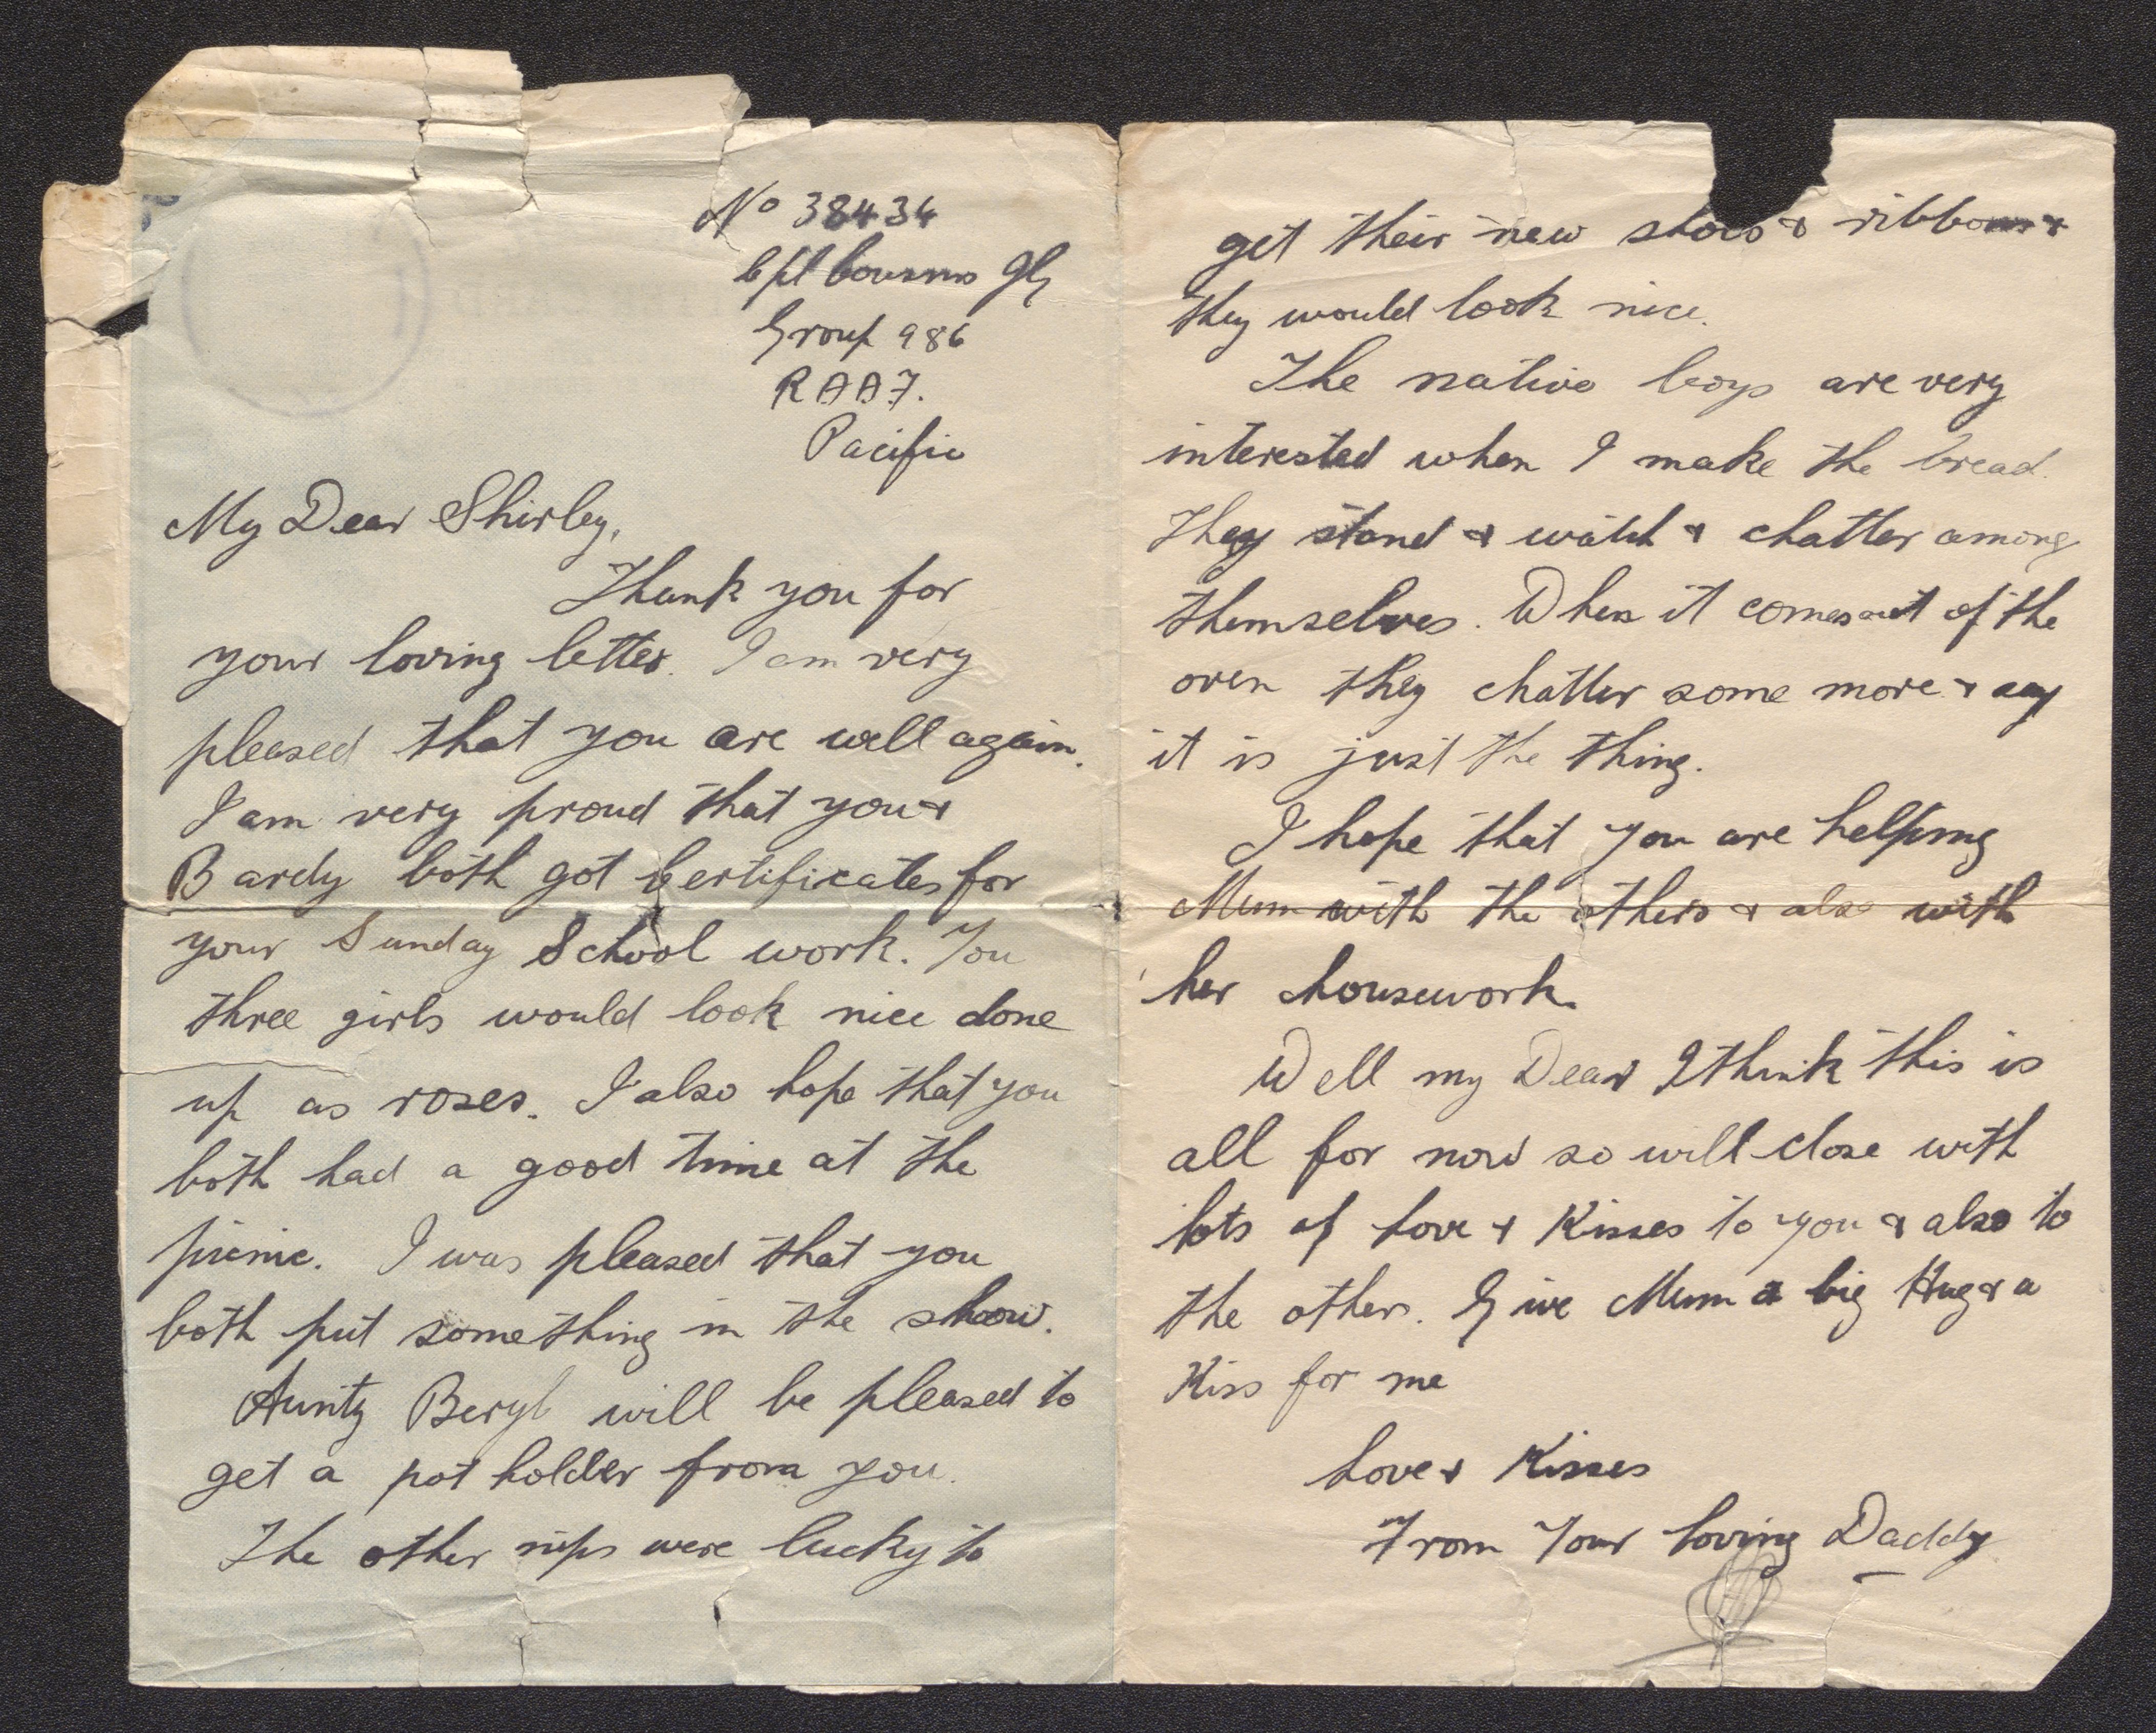 No 38434
Cpl Cousens JG
Group 986
RAAF.
Pacific
My Dear Shirley,
Thank you for
your loving letter. I am very
pleased that you are well again.
I am very proud that you &
Bardy both got Certificates for
your Sunday School work. You
three girls would look nice done
up as roses. I also hope that you
both had a good time at the
picnic. I was pleased that you
both put something in the show.
Aunty Beryl will be pleased to
get a pot holder from you.
The other nips were lucky to
get their new shoes & ribbons &
they would look nice.
The native boys are very
interested when I make the bread.
They stand & watch & chatter among
themselves. When it comes out of the
oven they chatter some more & say
it is just the thing.
I hope that you are helping
Mum with the others & also with
her housework.
Well my Dear I think this is
all for now so will close with
lots of Love & Kisses to you & also to
the others. Give Mum a big Hug & a
Kiss for me
Love & Kisses
From Your Loving Daddy